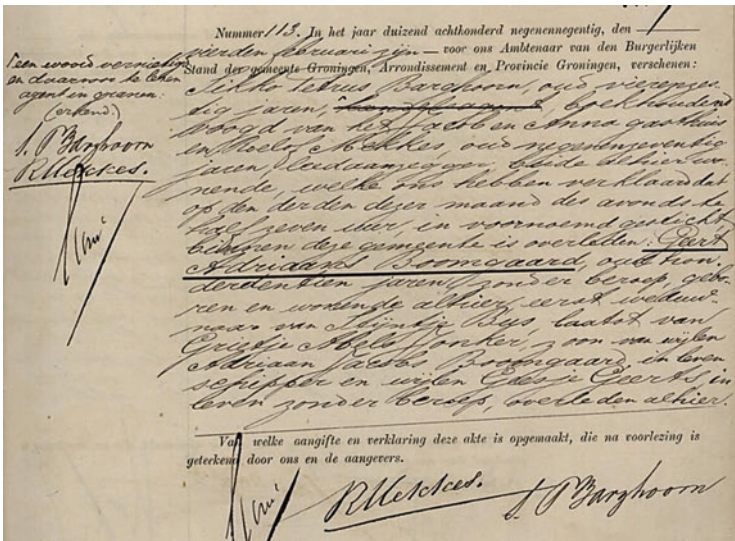 Nummer 113. In het jaar duizend achthonderd negenennegentig, den
vierden februari zijn — voor ons Ambtenaar van den Burgerlijken
Stand der gemeente Groningen, Arrondissement en Provincie Groningen, verschenen:
Petrus Barghoorn, oud vierenzes-
tig jaren, boekhoudend
voogd van het Jacob en Anna gasthuis
en Roelof Mekkes, oud negenenzeventig
jaren, leedaanzegger, beide alhier wo-
nende, welke ons hebben verklaard dat
op den derden dezer maand des avonds te
half zeven ure, in voornoemd gesticht,
binnen deze gemeente is overleden: Geert
Adriaans Boomgaard, oud hon-
derdentien jaren, zonder beroep, gebo-
ren en wonende alhier, eerst weduw-
naar van Stijntje Bus, laatst van
Grietje Abels Jonker, zoon van wijlen
Adriaan Jacobs Boomgaard, in leven
schipper en wijlen Geesje Geerts, in
leven zonder beroep, overleden alhier.
Van welke aangifte en verklaring deze akte is opgemaakt, die na voorlezing is
geteekend door ons en de aangevers.
RMekkes. PBarghoorn
Een woord vernietigd
en daarvoor te lezen
agent in granen.
(erkend.)
PBarghoorn
RMekkes.